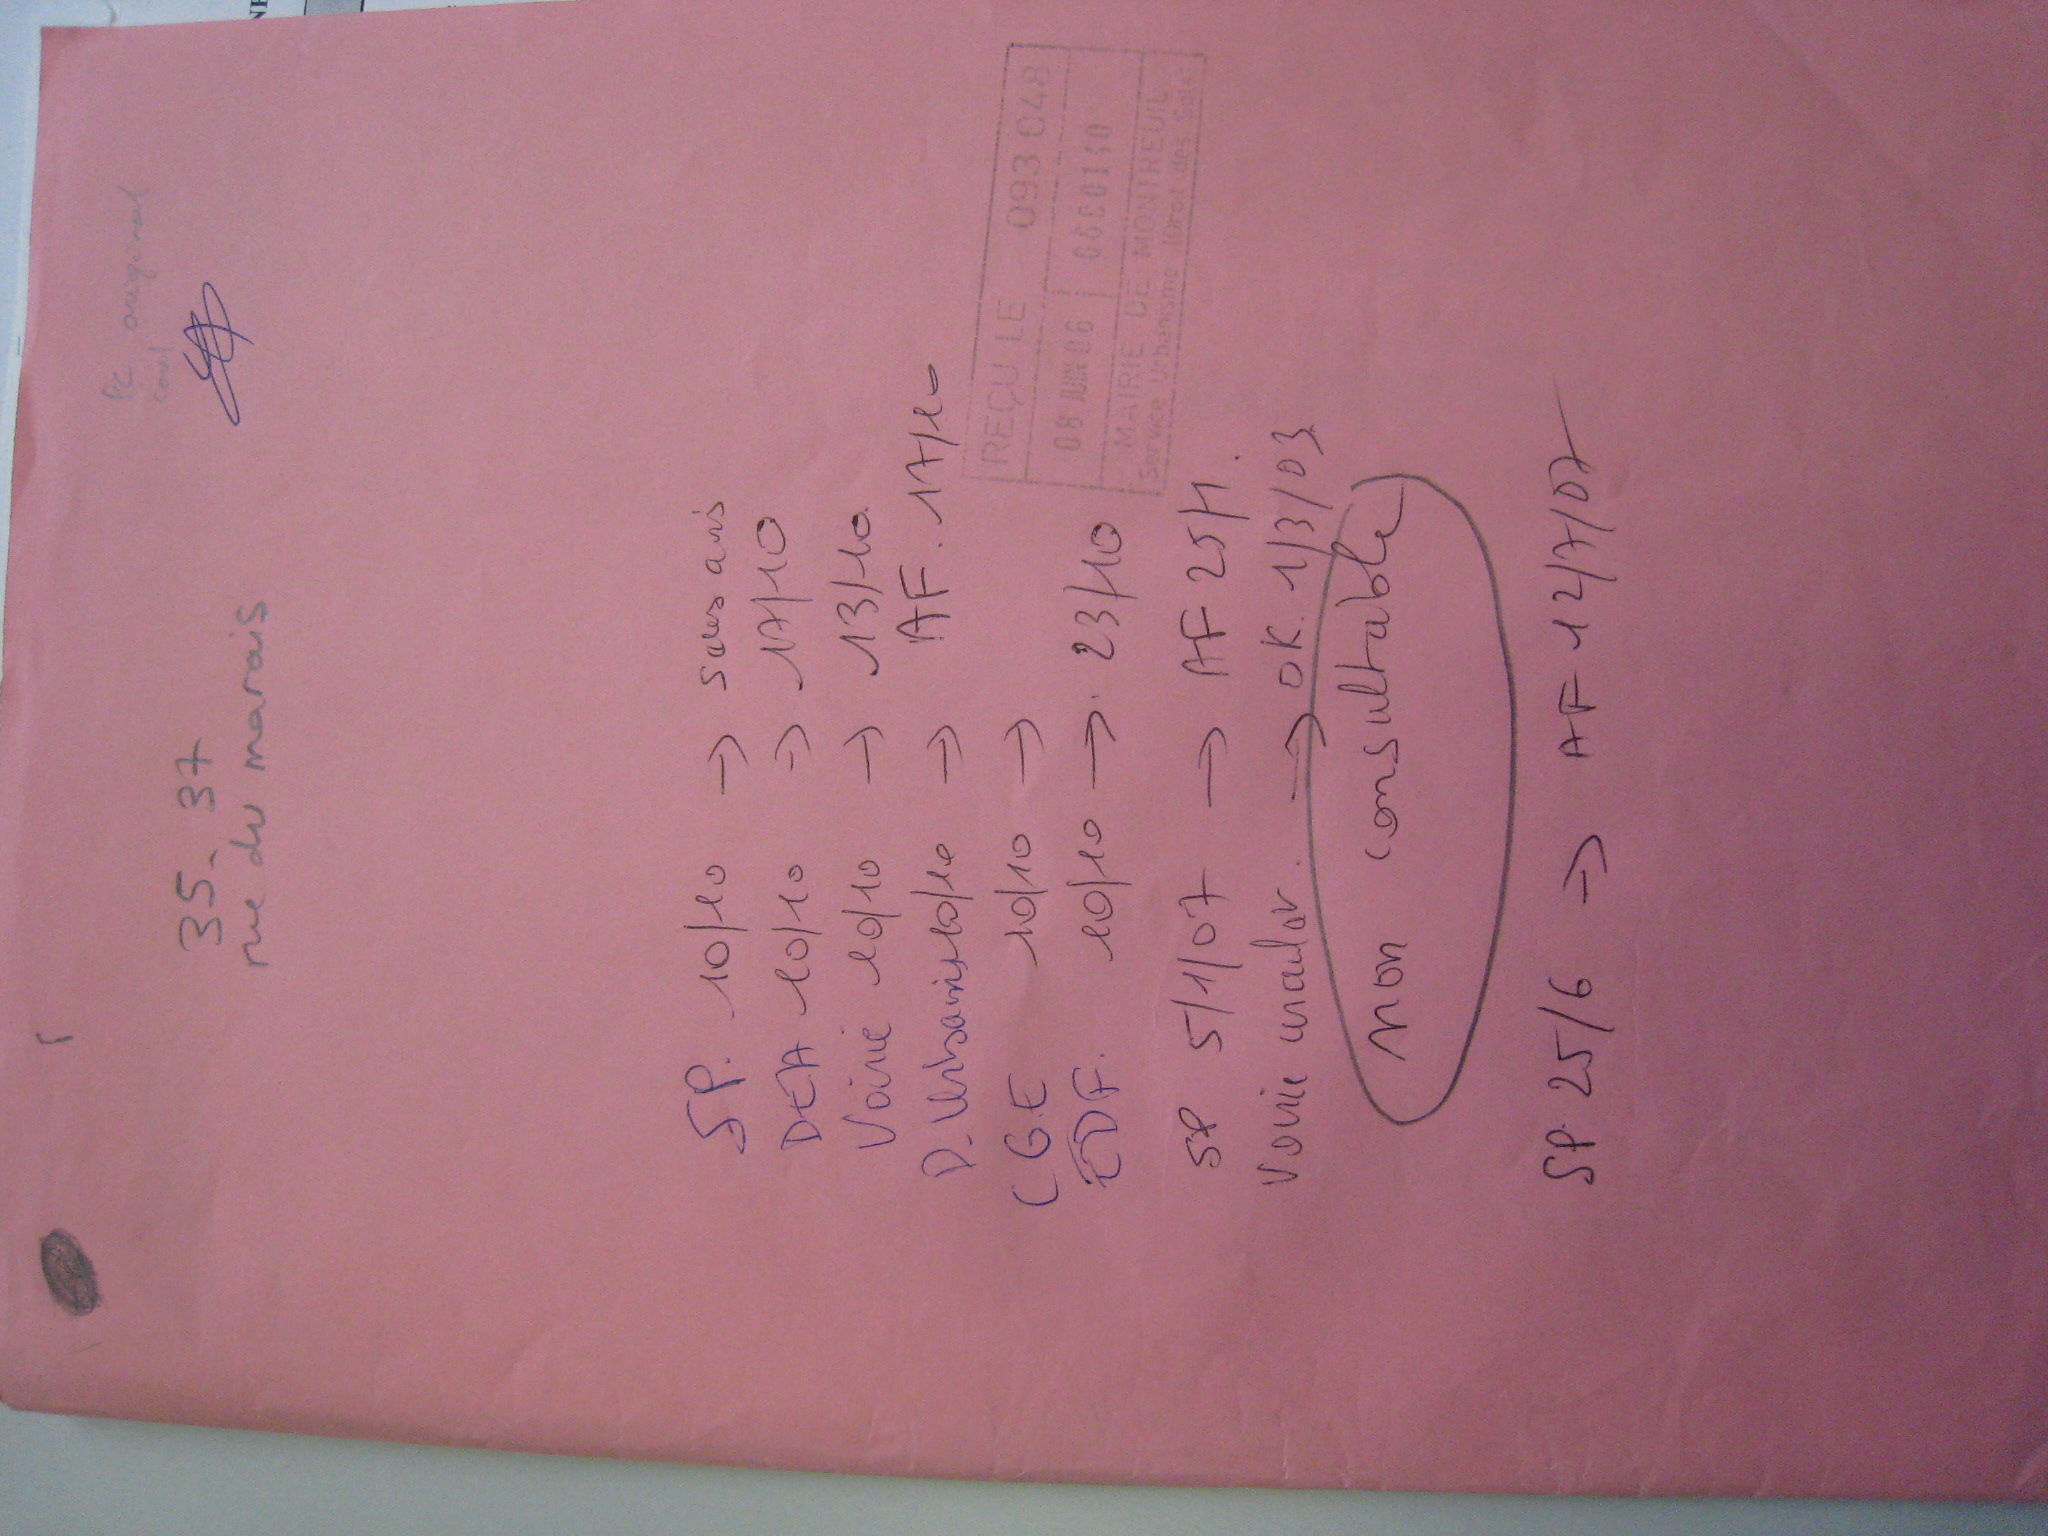 PC original
35-37
rue du marais
SP. 10/10 → sans avis
DEA 10/10 → 17/10
Voirie 10/10 → 13/10.
D. Urbanisme 10/10 → AF. 17/10
CGE 10/10 →
EDF. 10/10 → 23/10
REÇU LE 093 048
08 JUIN 06
MAIRIE DE MONTREUIL
Service Urbanisme (Droit des Sols)
SP 5/1/07 → AF 25/1.
Voirie → OK. 1/3/03
non consultable
SP. 25/6 → AF 12/7/07